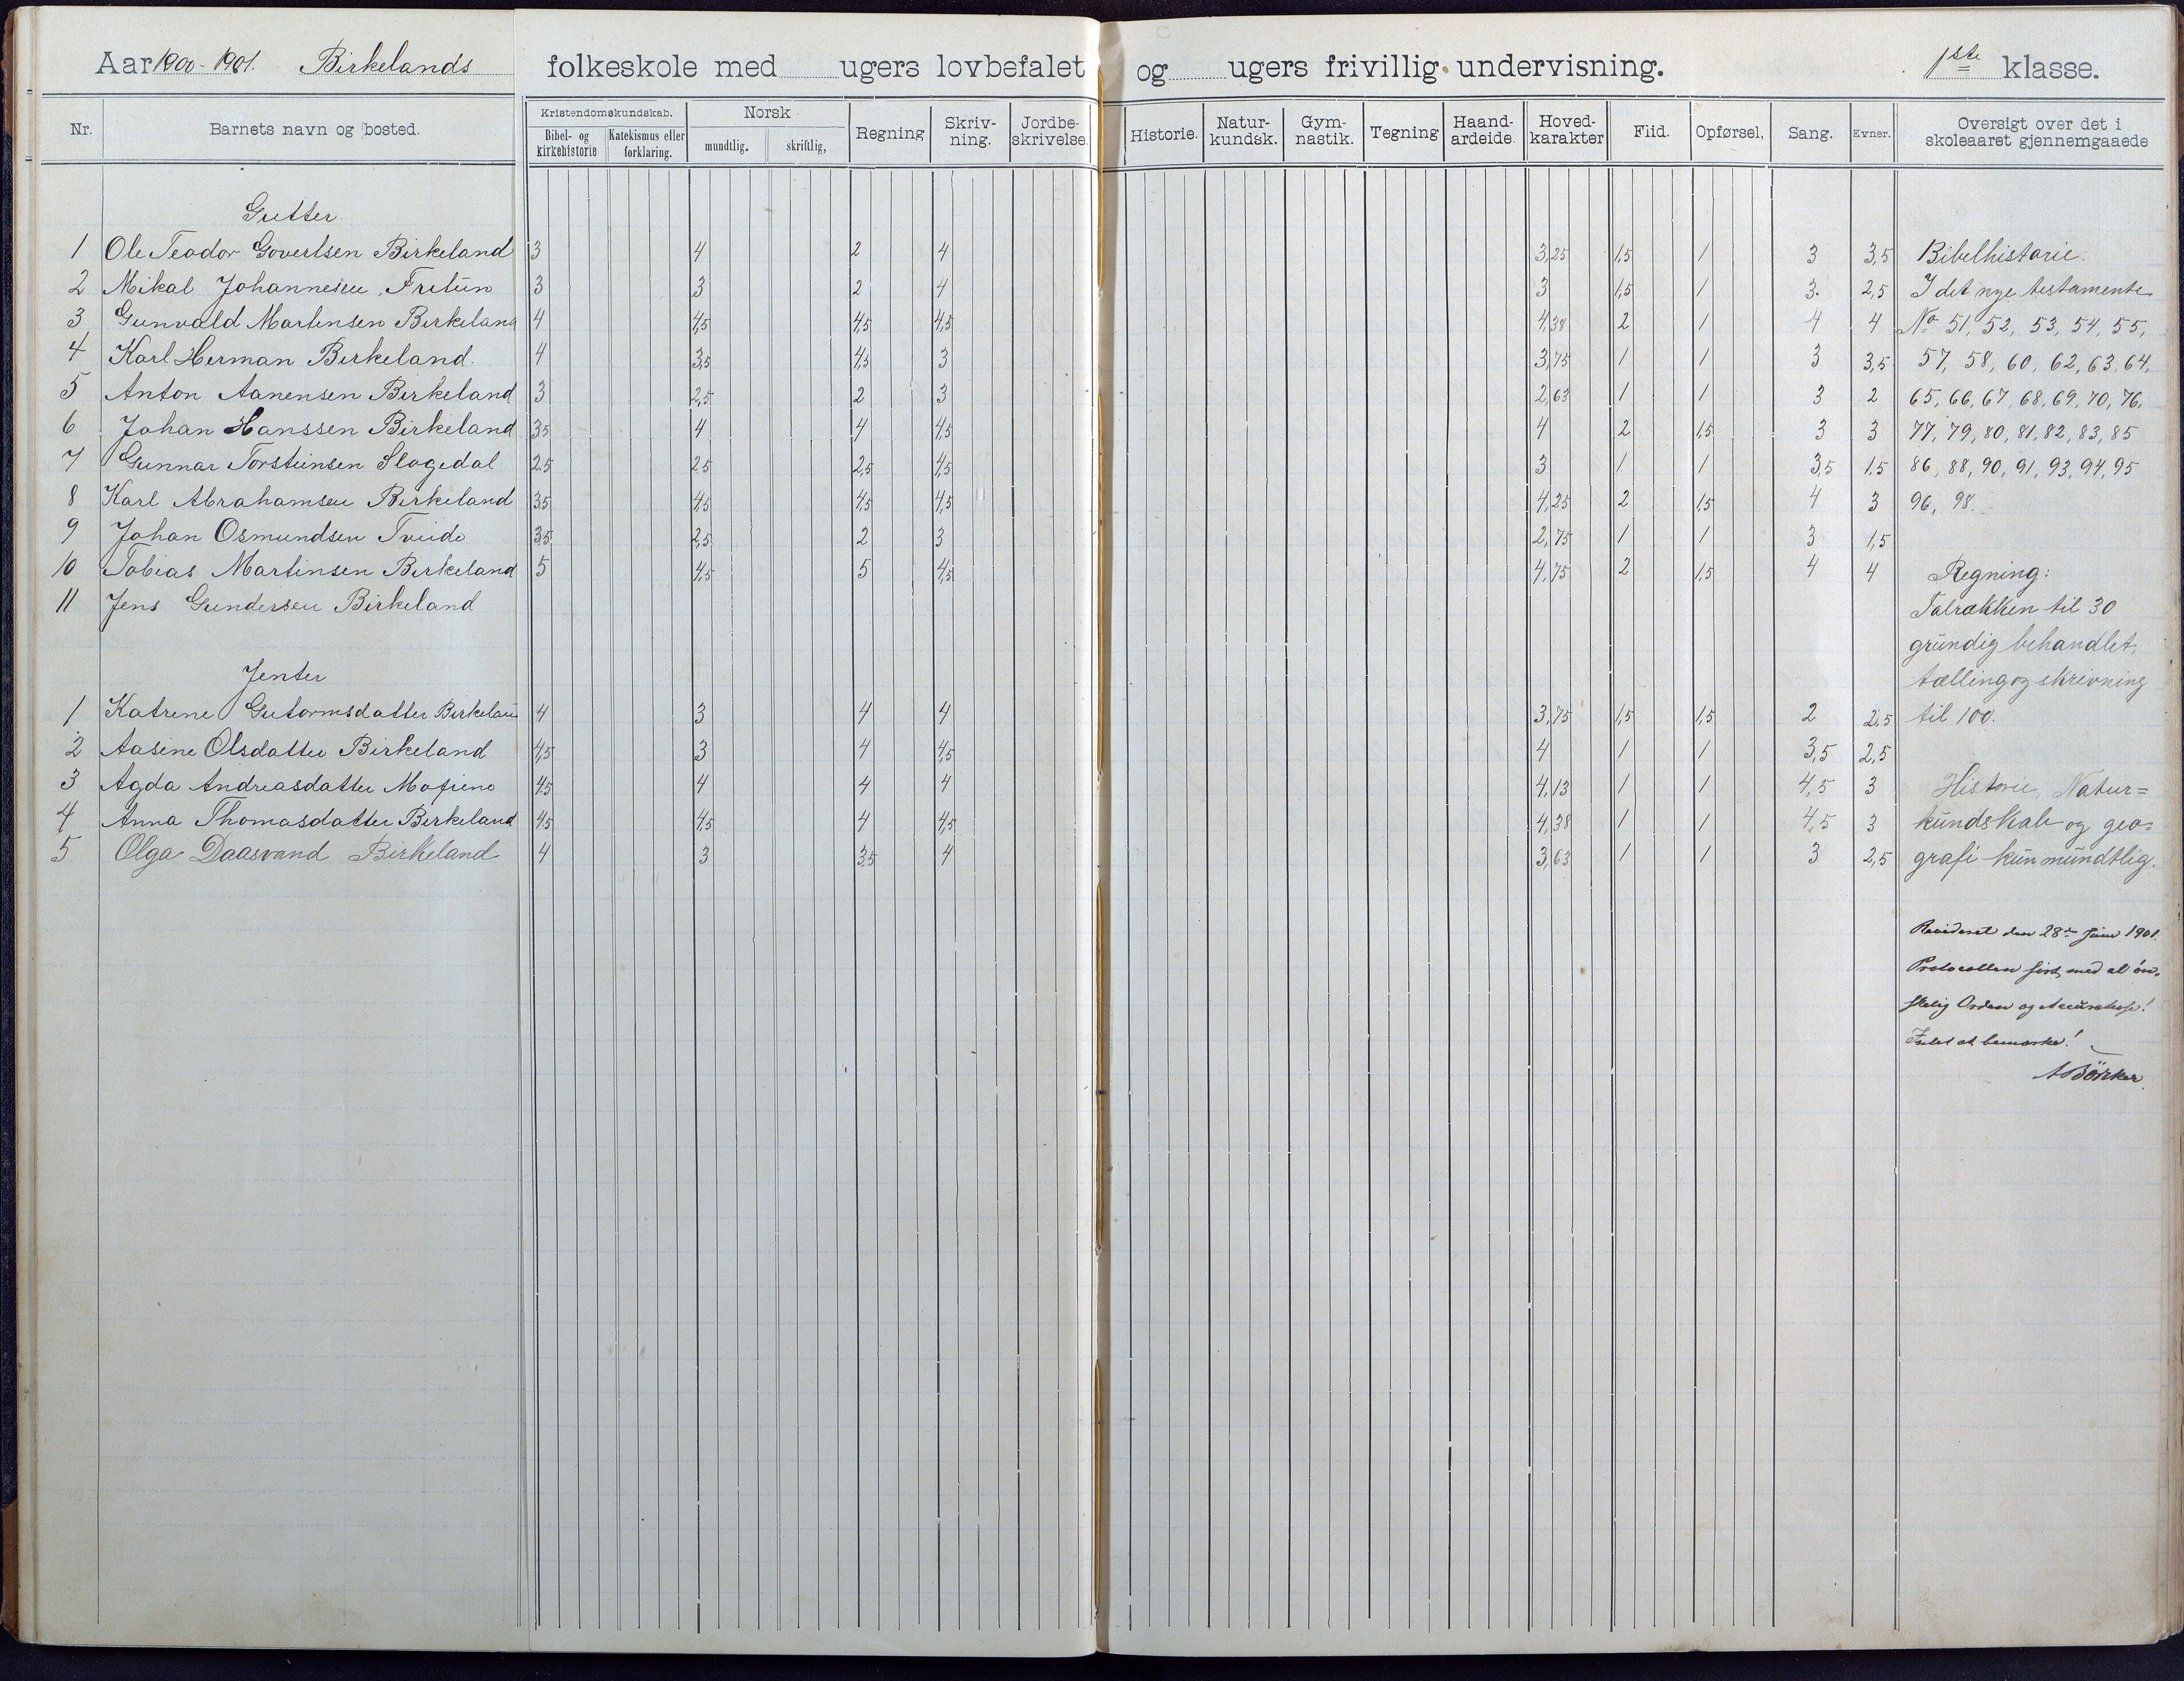 Aar 1900-1901. Birkelands folkeskole med ugers lovbefalet og ugers frivillig undervisning. 1ste klasse.
Nr. Barnets navn og bosted. Kristendomskundskab. Bibel- og kirkehistorie Katekismus eller forklaring. Norsk mundtlig. skriftlig, Regning Skriv-ning. Jordbe-skrivelse. Historie. Natur-kundsk. Gym-nastik. Tegning Haand-arbeide. Hoved-karakter Flid. Opførsel, Sang. Evner. Oversigt over det i skoleaaret gjennemgaaede
Gutter
1 Ole Teodor Govertsen Birkeland 3 4 2 4 3,25 1,5 1 3 3,5 Bibelhistorie.
2 Mikal Johannesen, Fritun 3 3 2 4 3 1,5 1 3. 2,5 I det nye testamente
3 Gunvald Martinsen Birkeland 4 4,5 4,5 4,5 4,38 2 1 4 4 No 51, 52, 53, 54, 55,
4 Karl Herman Birkeland. 4 3,5 4,5 3 3,75 1 1 3 3,5 57, 58, 60, 62, 63, 64,
5 Anton Aanensen Birkeland 3 2,5 2 3 2,63 1 1 3 2 65, 66, 67, 68, 69, 70, 76,
6 Johan Hanssen Birkeland 3,5 4 4 4,5 4 2 1,5 3 3 77, 79, 80, 81, 82, 83, 85
7 Gunnar Torsteinsen Slogedal 2,5 2,5 2,5 4,5 3 1 1 3,5 1,5 86, 88, 90, 91, 93, 94, 95
8 Karl Abrahamsen Birkeland 3,5 4,5 4,5 4,5 4,25 2 1,5 4 3 96, 98.
9 Johan Osmundsen Tveide 3,5 2,5 2 3 2,75 1 1 3 1,5
10 Tobias Martinsen Birkeland 5 4,5 5 4,5 4,75 2 1,5 4 4 Regning:
11 Jens Gundersen Birkeland Talrækken til 30
grundig behandlet,
Jenter tælling og skrivning
1 Katrine Gutormsdatter Birkeland 4 3 4 4 3,75 1,5 1,5 2 2,5 til 100.
2 Aasine Olsdatter Birkeland 4,5 3 4 4,5 4 1 1 3,5 2,5
3 Agda Andreasdatter 4,5 4 4 4 4,13 1 1 4,5 3 Historie, Natur=
4 Anna Thomasdatter Birkeland 4,5 4,5 4 4,5 4,38 1 1 4,5 3 kundskab og geo=
5 Olga Daasvand Birkeland 4 3 3,5 4 3,63 1 1 3 2,5 grafi kun mundtlig.
Revideret den 28de Juni 1901.
Protocollen ført med al øn-
skelig Orden og
Intet at bemærke!